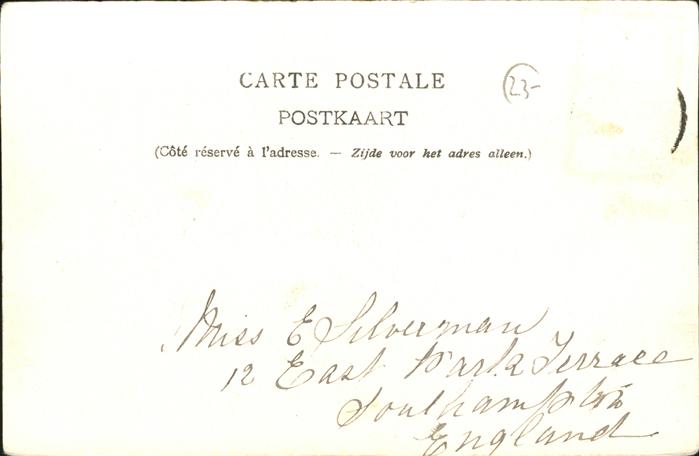 CARTE POSTALE
23-
POSTKAART
(Côté réservé à l'adresse. — Zijde voor het adres alleen.)
Miss E Silverman
12 East Park Terrace
Southampton
England